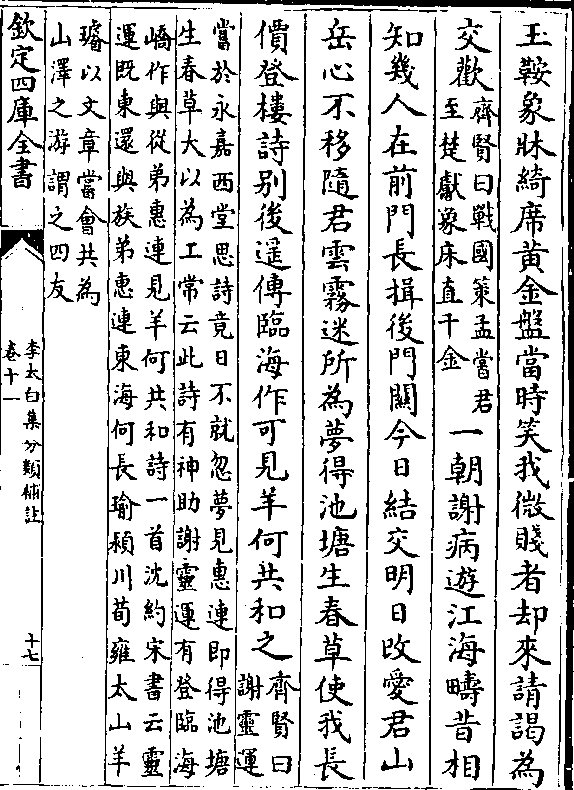 玉鞍象牀綺席黃金盤當時笑我微賤者却來請謁為
交歡
齊賢曰戰國策孟嘗君
至楚獻象床直千金
一朝謝病遊江海疇昔相
知幾人在前門長揖後門關今日結交明日改愛君山
岳心不移隨君雲霧迷所為夢得池塘生春草使我長
價登樓詩别後遥傳臨海作可見羊何共和之
齊賢曰
謝靈運
嘗於永嘉西堂思詩竟日不就忽夢見惠連即得池塘
生春草大以為工常云此詩有神助謝靈運有登臨海
嶠作與從弟惠連見羊何共和詩一首沈約宋書云靈
運既東還與族弟惠連東海何長瑜潁川荀雍太山羊
璿以文章嘗會共為
山澤之游謂之四友
欽定四庫全書
李太白集分類補註
卷十一
十七